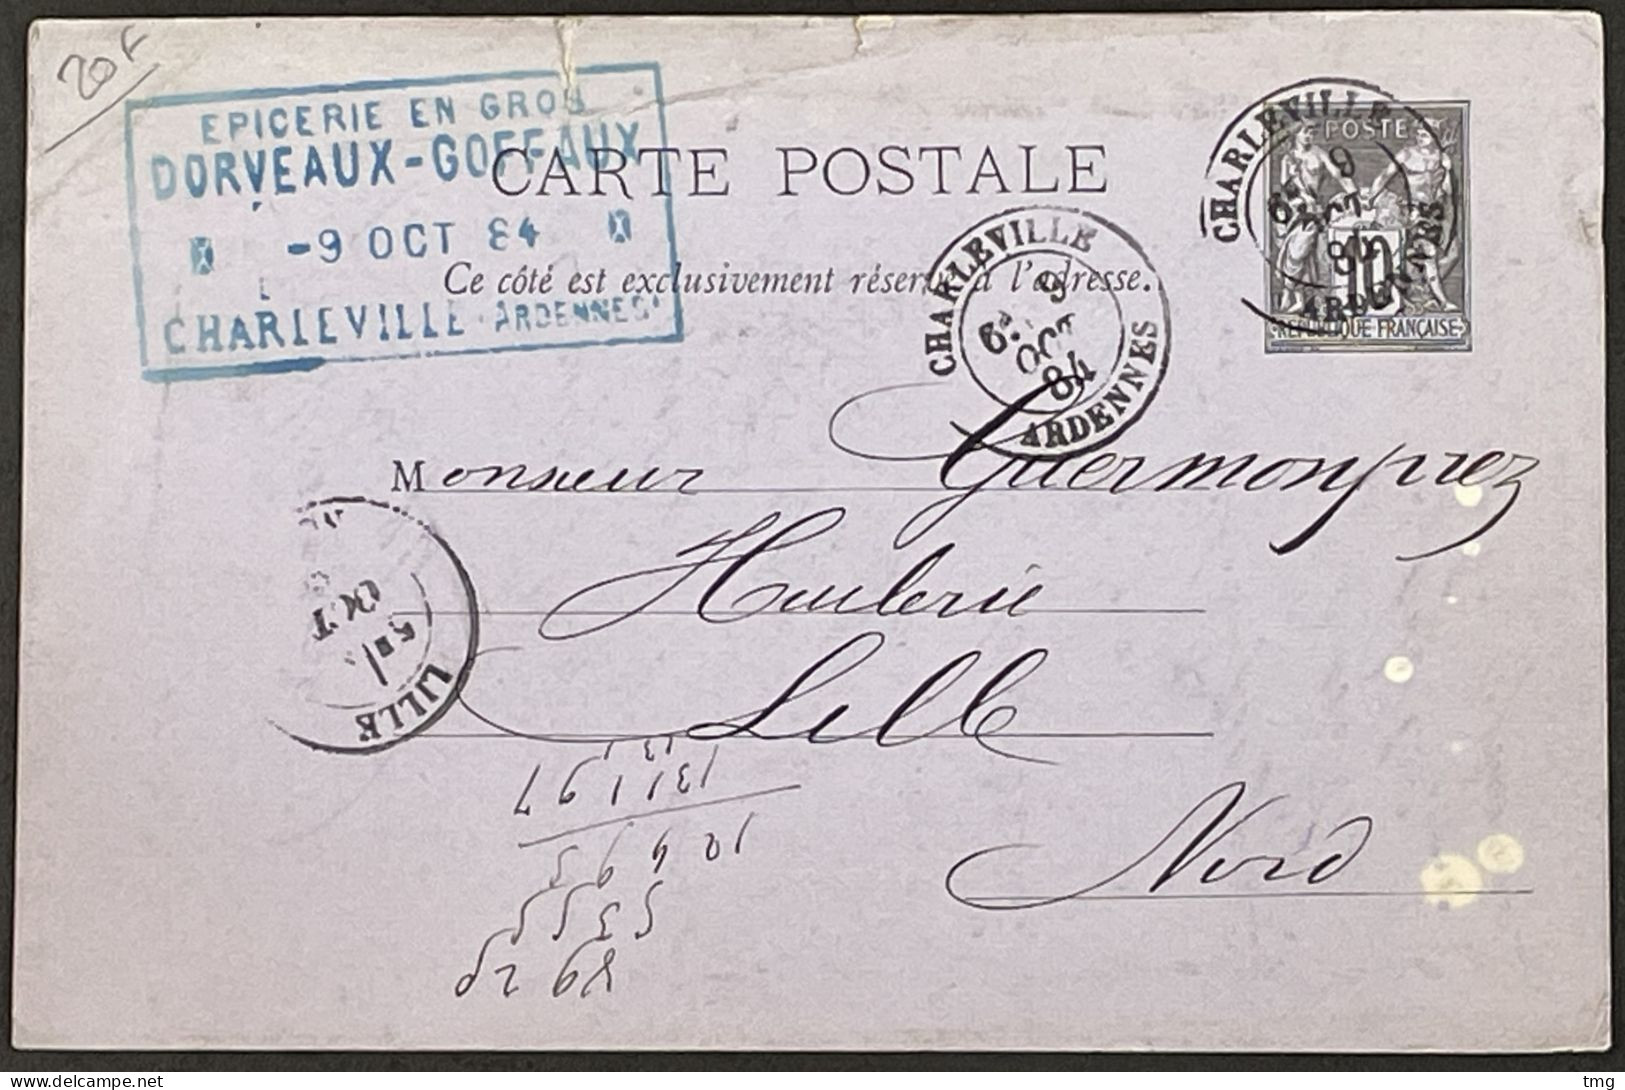 20F
EPICERIE EN GROS
DORVEAUX-GOFFAUX
-9 OCT 84
CHARLEVILLE ARDENNES
CARTE POSTALE
Ce côté est exclusivement réservé à l'adresse.
CHARLEVILLE
6E
9
OCT
84
ARDENNES
CHARLEVILLE
6E
9
OCT
84
ARDENNES
POSTE
10
REPUBLIQUE FRANÇAISE
Monsieur Guermonprez
Huilerie
Lille
Nord
OCT
LILLE